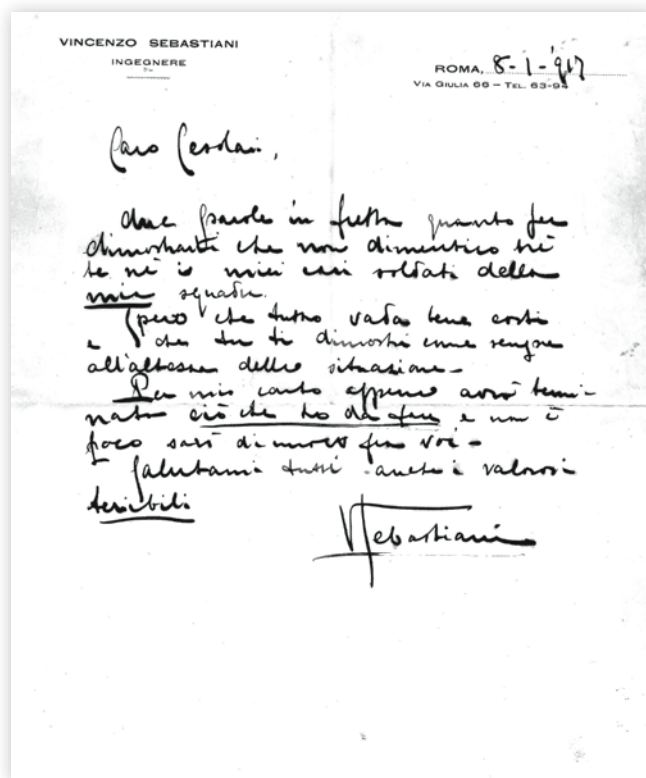 VINCENZO SEBASTIANI
INGEGNERE
ROMA, 8-1-917
VIA GIULIA 66 – TEL. 63-94
Caro
due parole in fretta quanto per
dimostrarti che non dimentico nè
te nè i miei cari soldati della
mia squadra.
Spero che tutto vada bene costì
e che tu ti dimostri come sempre
all'altezza della situazione –
Per mio conto appena avrò termi-
nato ciò che ho da fare e non è
poco sarò di nuovo fra voi –
Salutami tutti anche i valorosi
terribili
VSebastiani